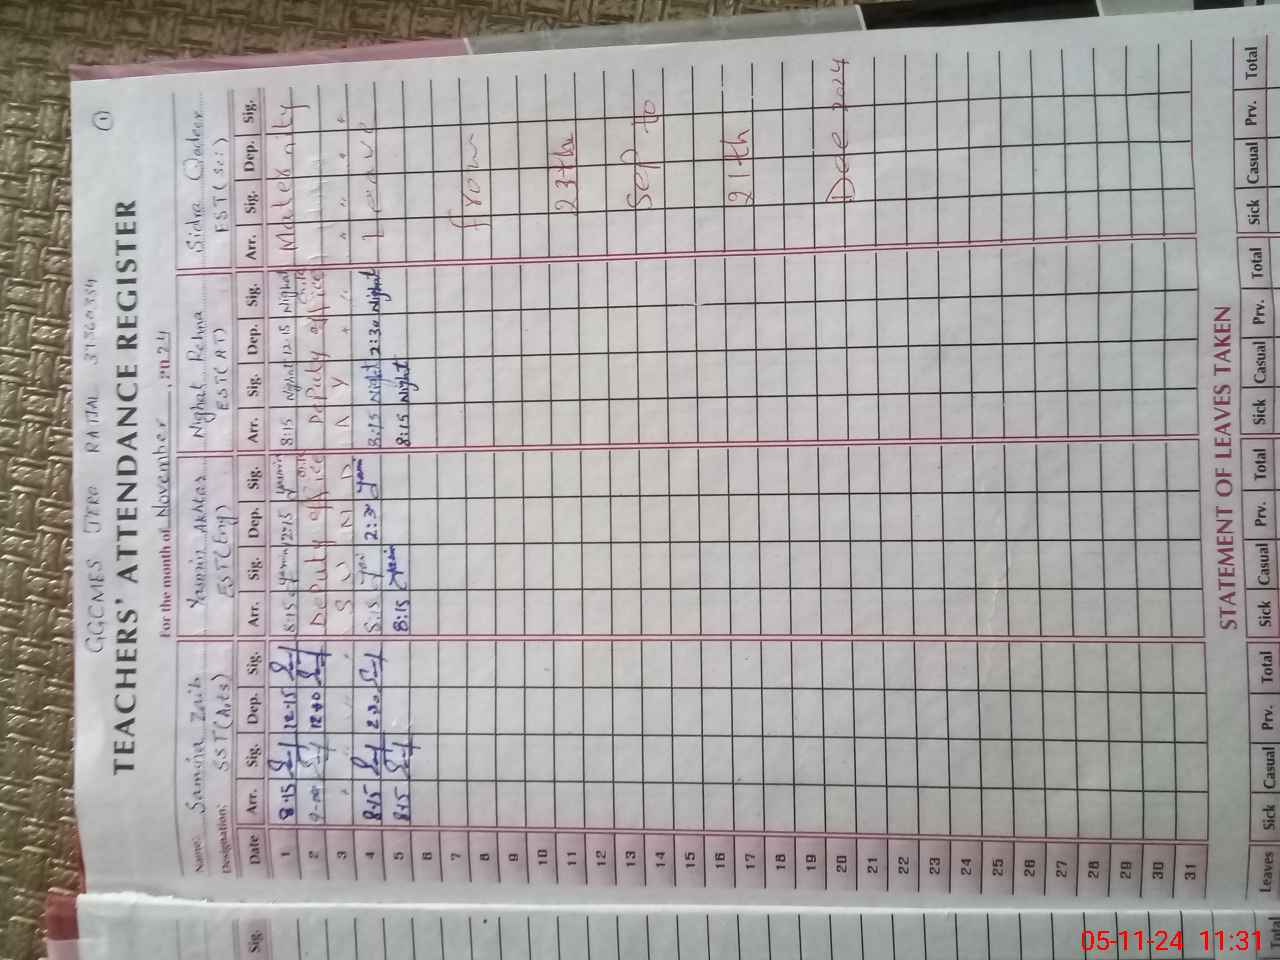 GGCMES JERO RATIAL 37360354 (1)
TEACHERS' ATTENDANCE REGISTER
For the month of November, 2024
Name: Samina Zaib Yasmin Akhtar Nighat Rehna Sidra Qadeer
Designation: SST(Arts) EST(Eng) EST(AT) EST(Sci)
Date Arr. Sig. Dep. Sig. Arr. Sig. Dep. Sig. Arr. Sig. Dep. Sig. Arr. Sig. Dep. Sig.
1 8:15 12:15 8:15 12:15 8:15 Nighat 12:15 Nighat Maternity
2 12:00 DePuty office DePuty office
3 " " " S U N D A Y " " " " " "
4 8:15 2:30 8:15 2:30 8:15 Nighat 2:30 Nighat Leave
5 8:15 8:15 8:15 Nighat
6
7
8 from
9
10
11 23th
12
13
14 Sep to
15
16
17 21th
18
19
20 Dec 2024
21
22
23
24
25
26
27
28
29
30
31
STATEMENT OF LEAVES TAKEN
Leaves Sick Casual Prv. Total Sick Casual Prv. Total Sick Casual Prv. Total Sick Casual Prv. Total
Sig.
Total
05-11-24 11:31